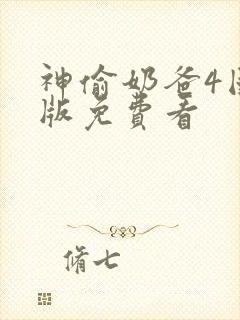 神偷奶爸4国
版免费看
脩七